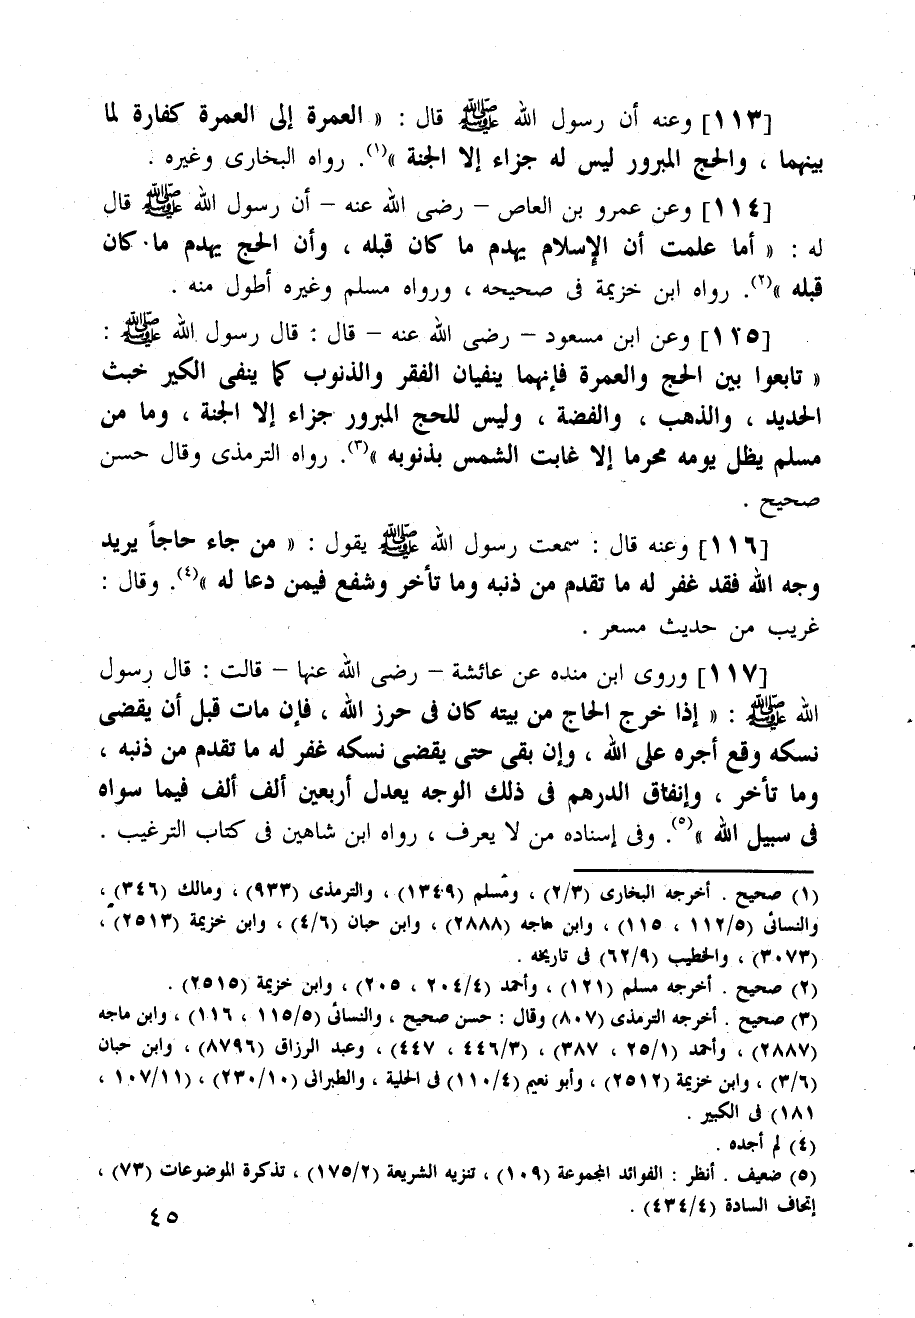 [١١٣] وعنه أن رسول الله ﷺ قال : « العمرة إلى العمرة كفارة لما
بينهما ، والحج المبرور ليس له جزاء إلا الجنة »(١). رواه البخارى وغيره .
[١١٤] وعن عمرو بن العاص – رضى الله عنه – أن رسول الله ﷺ قال
له : « أما علمت أن الإسلام يهدم ما كان قبله ، وأن الحج يهدم ما كان
قبله »(٢). رواه ابن خزيمة فى صحيحه ، ورواه مسلم وغيره أطول منه .
[١٢٥] وعن ابن مسعود – رضى الله عنه – قال : قال رسول الله ﷺ :
« تابعوا بين الحج والعمرة فإنهما ينفيان الفقر والذنوب كما ينفى الكير خبث
الحديد ، والذهب ، والفضة ، وليس للحج المبرور جزاء إلا الجنة ، وما من
مسلم يظل يومه محرما إلا غابت الشمس بذنوبه »(٣). رواه الترمذى وقال حسن
صحيح .
[١١٦] وعنه قال : سمعت رسول الله ﷺ يقول : « من جاء حاجاً يريد
وجه الله فقد غفر له ما تقدم من ذنبه وما تأخر وشفع فيمن دعا له »(٤). وقال :
غريب من حديث مسعر .
[١١٧] وروى ابن منده عن عائشة – رضى الله عنها – قالت : قال رسول
الله ﷺ : « إذا خرج الحاج من بيته كان فى حرز الله ، فإن مات قبل أن يقضى
نسكه وقع أجره على الله ، وإن بقى حتى يقضى نسكه غفر له ما تقدم من ذنبه ،
وما تأخر ، وإنفاق الدرهم فى ذلك الوجه يعدل أربعين ألف ألف فيما سواه
فى سبيل الله »(٥). وفى إسناده من لا يعرف ، رواه ابن شاهين فى كتاب الترغيب .
(١) صحيح . أخرجه البخارى (٢/٣) ، ومُسلم (١٣٤٩) ، والترمذى (٩٣٣) ، ومالك (٣٤٦) ،
والنسائى (١١٢/٥ ، ١١٥) ، وابن ماجه (٢٨٨٨) ، وابن حبان (٤/٦) ، وابن خزيمة (٢٥١٣) ،
(٣٠٧٣) ، والخطيب (٦٢/٩) فى تاريخه .
(٢) صحيح . أخرجه مسلم (١٢١) ، وأحمد (٢٠٤/٤ ، ٢٠٥) ، وابن خزيمة (٢٥١٥) .
(٣) صحيح . أخرجه الترمذى (٨٠٧) وقال : حسن صحيح ، والنسائى (١١٥/٥ ، ١١٦) ، وابن ماجه
(٢٨٨٧) ، وأحمد (٢٥/١ ، ٣٨٧) ، (٤٤٦/٣ ، ٤٤٧) ، وعبد الرزاق (٨٧٩٦) ، وابن حبان
(٣/٦) ، وابن خزيمة (٢٥١٢) ، وأبو نعيم (١١٠/٤) فى الحلية ، والطبرانى (٢٣٠/١٠) ، (١٠٧/١١ ،
١٨١) فى الكبير .
(٤) لم أجده .
(٥) ضعيف . أنظر : الفوائد المجموعة (١٠٩) ، تنزيه الشريعة (١٧٥/٢) ، تذكرة الموضوعات (٧٣) ،
إتحاف السادة (٤٣٤/٤) .
٤٥